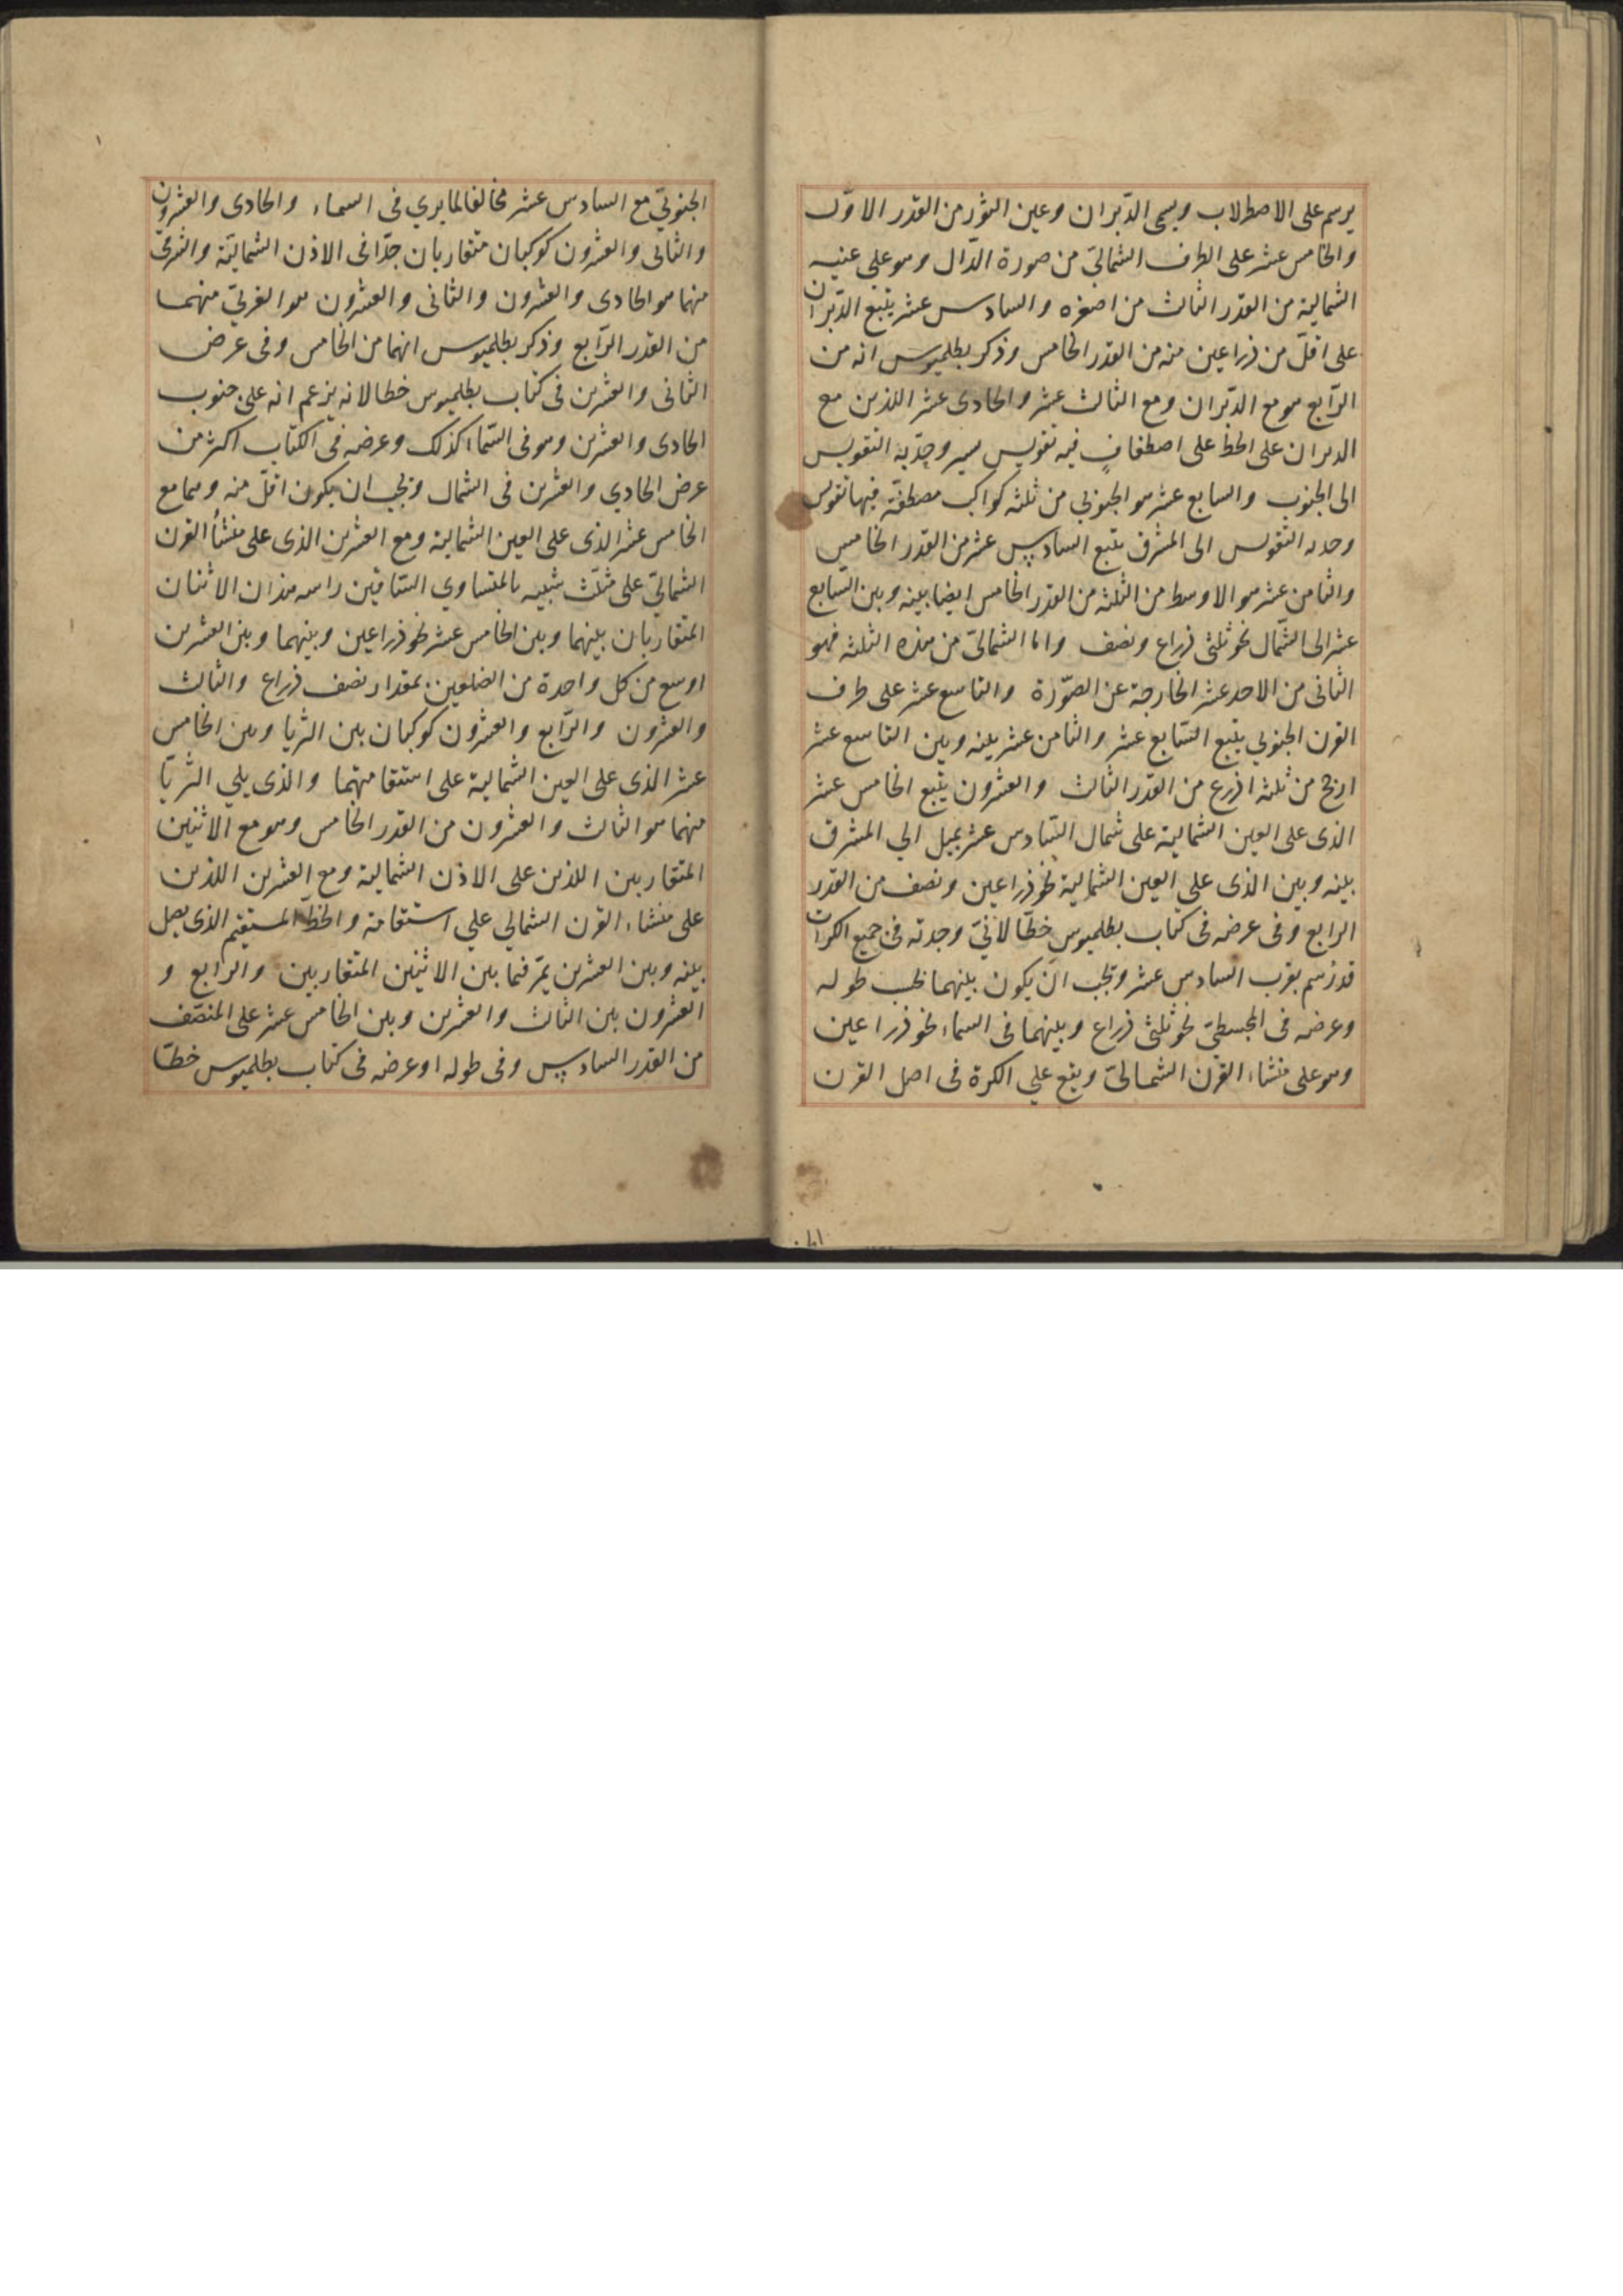 يرسم على الاصطرلاب ويسمى الدّبران وعين الثور من القدر الاوّل
والخامس عشر على الطرف الشماليّ من صورة الدّال وهو على عينه
الشمالية من القدر الثالث من اصغره والسادس عشر يتبع الدّبران
على اقلّ من ذراعين منه من القدر الخامس وذكر بطلميوس انه من
الرّابع هو مع الدّبران ومع الثالث عشر والحادى عشر اللذين مع
الدبران على الخط على اصطفافٍ فيه تقويس يسير وحدّبة التقويس
الى الجنوب والسابع عشر هو الجنوبي من ثلثه كواكب مصطفّة فيها تقويس
وحدبه التقويس الى المشرق يتبع السادس عشر من القدر الخامس
والثامن عشر هو الاوسط من الثلثه من القدر الخامس ايضا بينه وبين السّابع
عشر الى الشّمال نحو ثلثى ذراع ونصف واما الشمالىّ من هذه الثلثه فهو
الثانى من الاحد عشر الخارجة عن الصّورة والتاسع عشر على طرف
القرن الجنوبي يتبع السّابع عشر والثامن عشر بينه وبين التاسع عشر
ارجح من ثلثه اذرع من القدر الثالث والعشرون يتبع الخامس عشر
الذى على العين الشمالية على شمال السّادس عشر يميل الي المشرق
بينه وبين الذى على العين الشمالية نحو ذراعين ونصف من القدر
الرابع وفى عرضه فى كتاب بطلميوس خطّا لانّنيّ وجدته فى جميع الكرات
قد رُسم بقرب السادس عشر ويجب ان يكون بينهما بحسب طوله
وعرضه فى المجسطيّ نحو ثلثى ذراع وبينهما فى السماء نحو ذراعين
وهو على منشاء القرن الشمالىّ ويقع علي الكرة فى اصل القرن
الجنوبيّ مع السادس عشر مخالفا لما يري فى السماء والحادى والعشرون
والثانى والعشرون كوكبان متقاربان جدّا فى الاذن الشماليّة والشرقىّ
منهما هو الحادى والعشرون والثانى والعشرون هو الغربيّ منهما
من القدر الرّابع وذكر بطلميوس انهما من الخامس وفى عرض
الثانى والعشرين فى كتاب بطلميوس خطا لانه يزعم انه على جنوب
الحادى والعشرين وهو فى السّماء كذلك وعرضه فى الكتاب اكثر من
عرض الحادي والعشرين فى الشمال ويجب ان يكون اقلّ منه وهما مع
الخامس عشر الذى على العين الشمالية ومع العشرين الذى على منشأ القرن
الشماليّ على مثلّث شبيه بالمتساوي السّاقين راسه هذان الاثنان
المتقاربان بينهما وبين الخامس عشر نحو ذراعين وبينهما وبين العشرين
اوسع من كل واحدة من الضلعين بمقدار نصف ذراع والثالث
والعشرون والرّابع والعشرون كوكبان بين الثريا وبين الخامس
عشر الذى على العين الشمالية على استقامتهما والذى يلي الثريّا
منهما هو الثالث والعشرون من القدر الخامس وهو مع الاثنين
المتقاربين اللذين على الاذن الشمالية ومع العشرين اللذين
على منشاء القرن الشمالي علي استقامة والخطّ المستقيم الذى يصل
بينه وبين العشرين يمّر فيما بين الاثنين المتقاربين والرابع و
العشرون بين الثالث والعشرين وبين الخامس عشر على المنتصّف
من القدر السادس وفى طوله او عرضه فى كتاب بطلميوس خطّا